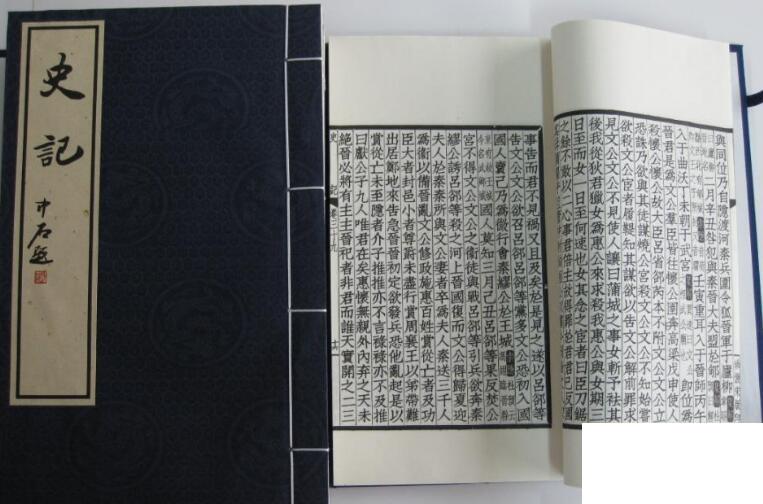 史記
中石題
與同位乃自隱渡河秦兵圍令狐晉軍于廬柳
二月辛丑咎犯與秦晉大夫盟於郇
壬寅重耳入于晉師丙午
入于曲沃丁未朝于武宮
卽位爲
晉君是爲文公羣臣皆往懷公圉奔高梁戊申使人
殺懷公懷公故大臣呂省郤芮本不附文公文公立
恐誅乃欲與其徒謀燒公宮殺文公文公不知始嘗
欲殺文公宦者履鞮知其謀欲以告文公解前罪求
見文公文公不見使人讓曰蒲城之事女斬予袪其
後我從狄君獵女爲惠公來求殺我惠公與女期三
日至而女一日至何速也女其念之宦者曰臣刀鋸
之餘不敢以二心事君倍主故得罪於君君已反國
事告而君不見禍又且及矣於是見之遂以呂郤等
告文公文公欲召呂郤呂郤等黨多文公恐初入
國人賣己乃爲微行會秦繆公於王城索隱杜預云馮翊臨晉縣
東有故王城今名武鄉城國人莫知三月己丑呂郤等果反焚公
宮不得文公文公之衞徒與戰呂郤等引兵欲奔秦
繆公誘呂郤等殺之河上晉國復而文公得歸夏迎
夫人於秦秦所與文公妻者卒爲夫人秦送三千人
爲衞以備晉亂文公修政施惠百姓賞從亡者及功
臣大者封邑小者尊爵未盡行賞周襄王以弟帶難
出居鄭地來告急晉晉初定欲發兵恐他亂起是以
賞從亡未至隱者介子推推亦不言祿祿亦不及推
曰獻公子九人唯君在矣惠懷無親外內弃之天未
絕晉必將有主主晉祀者非君而誰天實開之二三
史記卷三十九